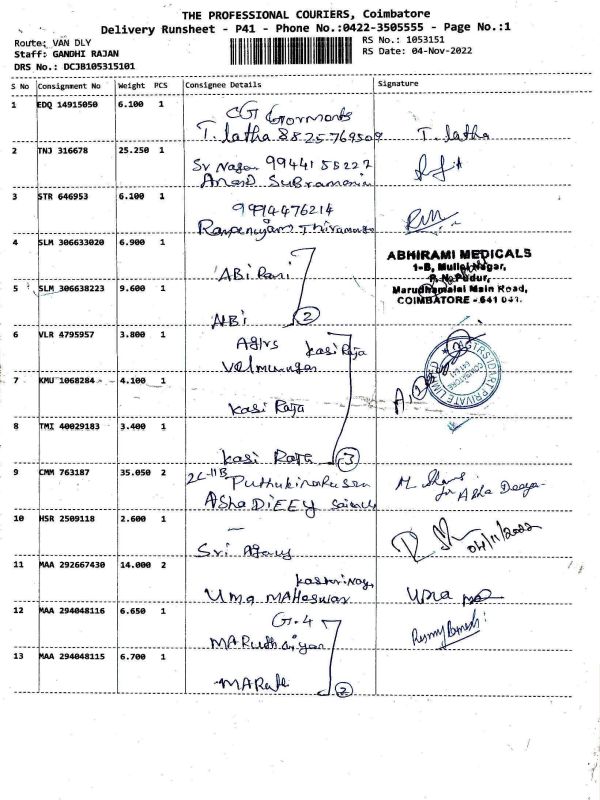 THE PROFESSIONAL COURIERS, Coimbatore
Delivery Runsheet - P41 - Phone No.:0422-3505555 - Page No.:1
Route: VAN DLY
RS No.: 1053151
Staff: GANDHI RAJAN
RS Date: 04-Nov-2022
DRS No.: DCJB105315101
S No Consignment No Weight PCS Consignee Details Signature
1 EDQ 14915050 6.100 1
CGT Gorments
T. latha 8825769509 T. latha
2 TNJ 316678 25.250 1
Sr Nagar 9944155227
Anand Subramanian
3 STR 646953 6.100 1
9994476214
4 SLM 306633020 6.900 1
ABi Rani
ABHIRAMI MEDICALS
1-B, Mullai Nagar,
P. N. Pudur,
Marudhamalai Main Road,
COIMBATORE - 641 041.
5 SLM 306638223 9.600 1
ABi 2
6 VLR 4795957 3.800 1
Agrs Kasi Raja
Velmurugan
7 KMU 1068284 4.100 1
Kasi Raja
8 TMI 40029183 3.400 1
Kasi Raja 3
9 CMM 763187 35.050 2
2C-11B
Asha DiEEY
for Asha Deeya
10 HSR 2509118 2.600 1
Sri Agency
04/11/2022
11 MAA 292667430 14.000 2
Kasturi Nag
Uma Maheswar Uma
12 MAA 294048116 6.650 1
G.4
13 MAA 294048115 6.700 1
2